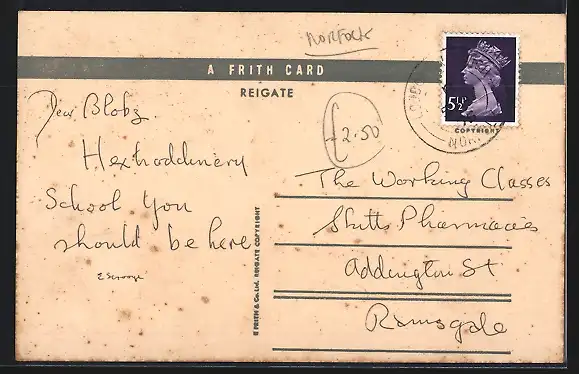 NORFOLK
A FRITH CARD
REIGATE
5½P
COPYRIGHT
£2.50
Dear Blobz
Hextroddinery
School You
should be here
E Scrooge
F. FRITH & Co. Ltd. REIGATE COPYRIGHT
The Working Classes
Shitts Pharmacies
Addington St
Ramsgate